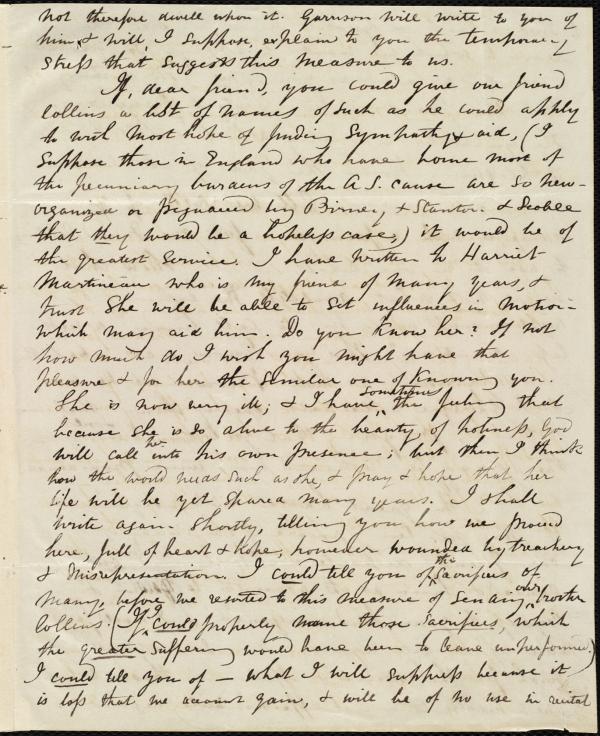 not therefore dwell upon it. Garrison will write to you of
him, & will, I suppose, explain to you the temporary
stress that suggests this measure to us.
If, dear friend, you could give our friend
Collins a list of names of such as he could apply
to with most hope of finding sympathy & aid, (I
suppose those in England who have borne most of
the pecuniary burdens of the A.S. cause are so new-
organized or prejudiced by Birney & Stanton & Scoble
that they would be a hopeless case,) it would be of
the greatest service. I have written to Harriet
Martineau who is my friend of many years, &
trust she will be able to set influences in motion
which may aid him. Do you know her? If not
how much do I wish you might have that
pleasure & for her the similar one of knowing you.
She is now very ill; & I have sometimes the feeling that
because she is so alive to the beauty of holiness, God
will call her into his own presence; but then I think
how the world needs such as she, & pray & hope that her
life will be yet spared many years. I shall
write again shortly, telling you how we proceed
here, full of heart & hope, however wounded by treachery
& misrepresentation. I could tell you of the sacrifices of
many, before we resorted to this measure of sending our brother
Collins. (If I could properly name those sacrifices, which
the greater suffering would have been to leave unperformed.)
I could tell you of — what I will suppress because it
is loss that we cannot gain, & will be of no use in recital